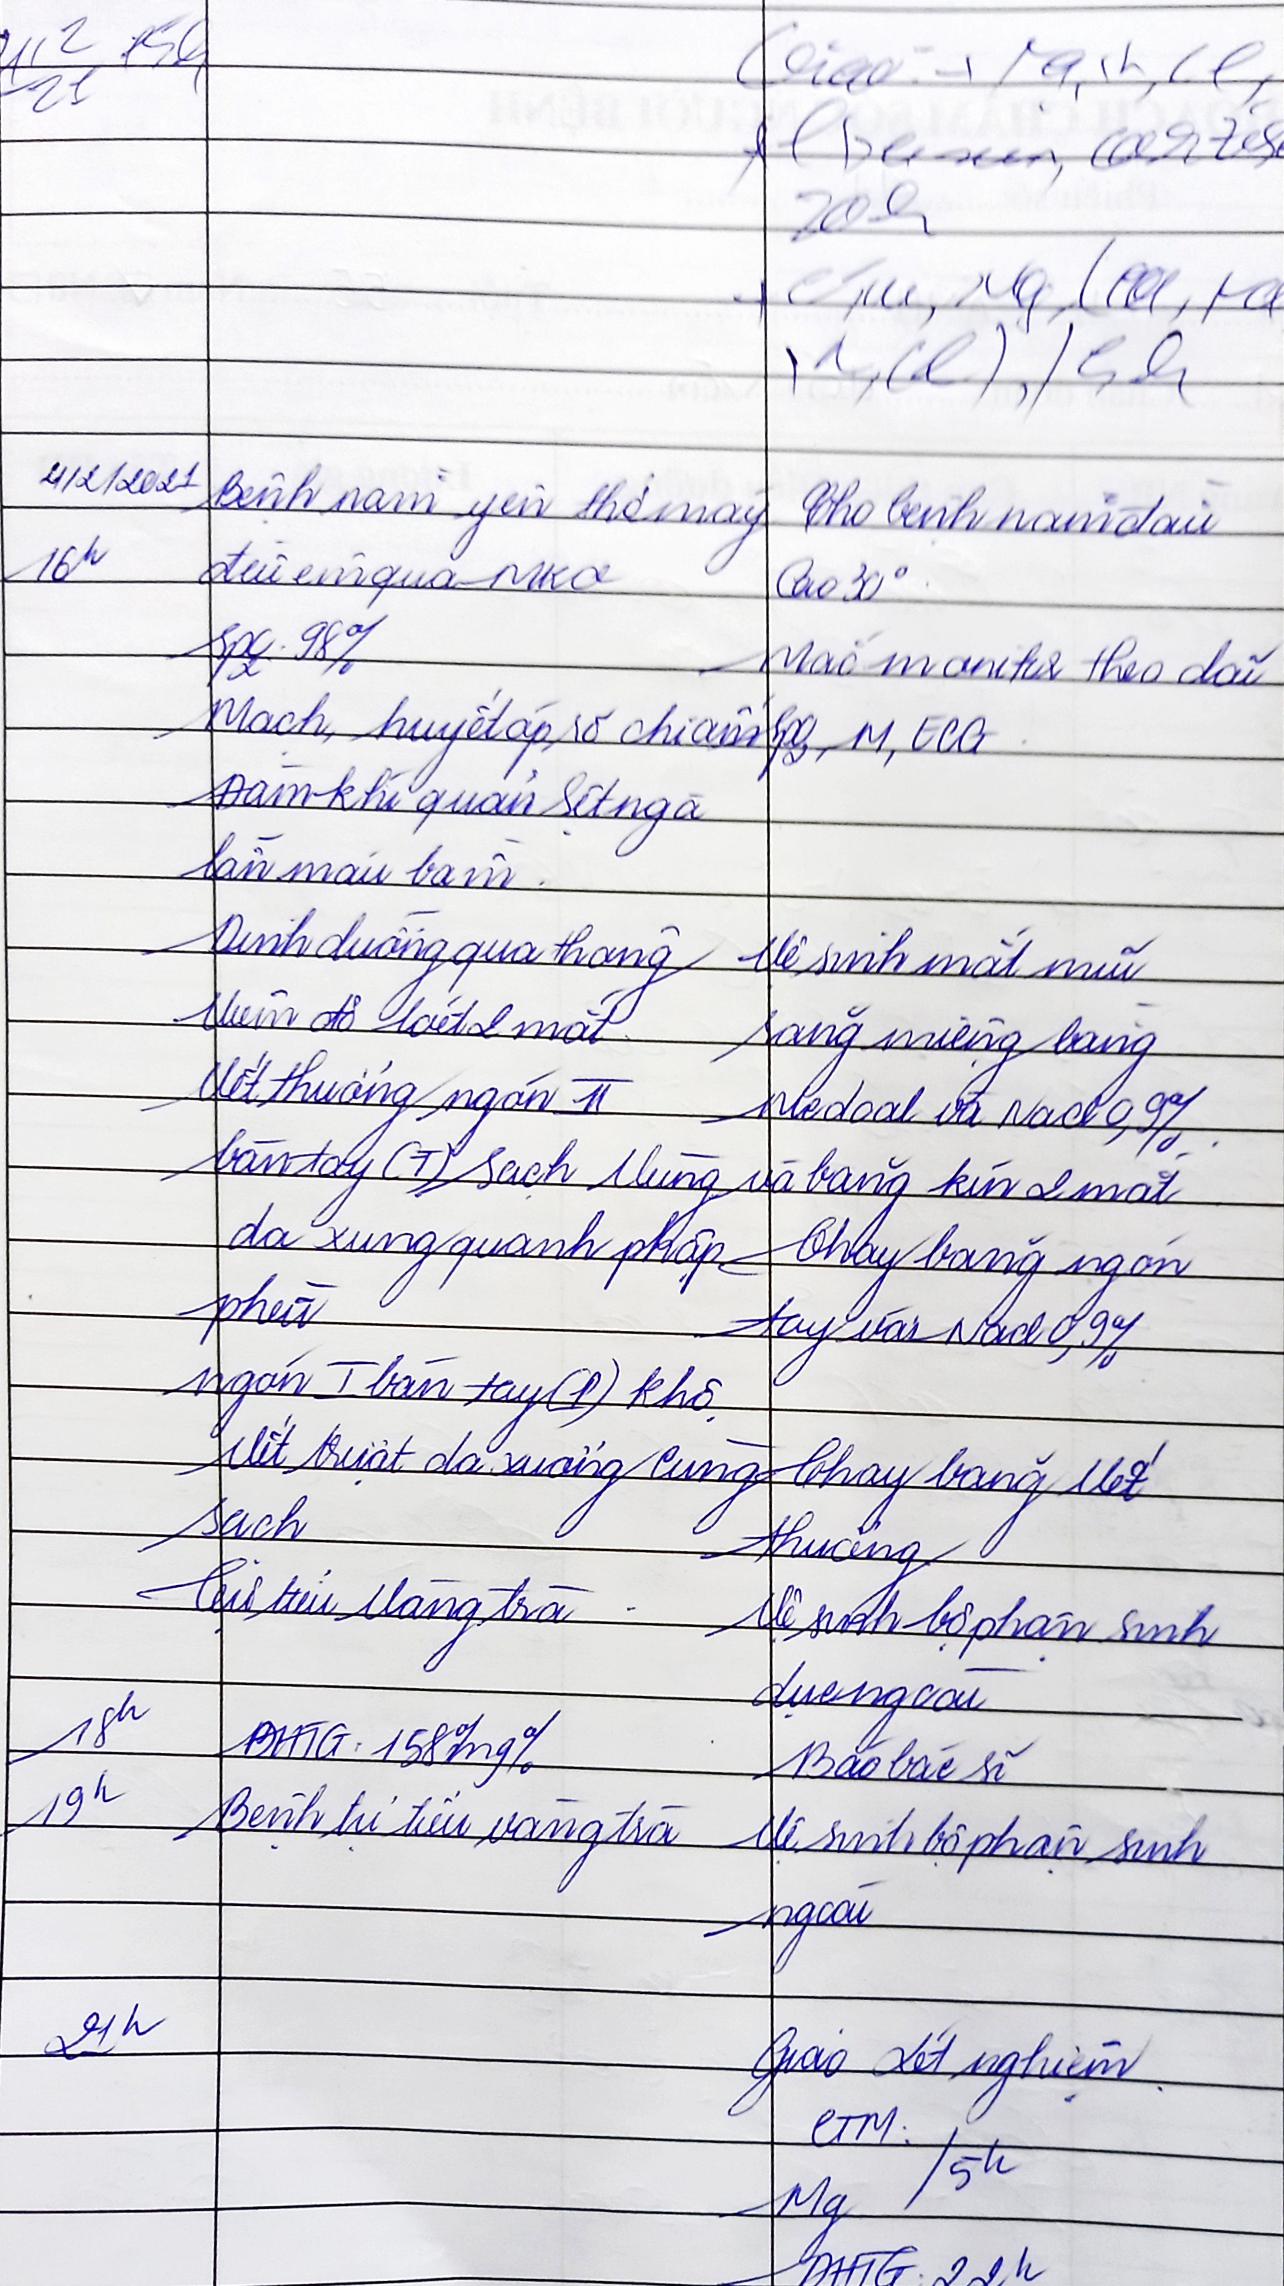 4/2 15h
21
Giao: → Na, K, Cl,
20h
+ CTM, Mg, (Cl, Na
K, Cl), / 5h
4/2/2021 Bệnh nằm yên thở máy Cho bệnh nằm đầu
16h đều êm qua MKQ Cao 30°.
SpO2: 98% Mắc monitor theo dõi
Mạch, huyết áp, số chi ấm SpO2, M, ECG
Đàm khí quản Sệt ngà
lẫn máu bầm.
Dinh dưỡng qua thông Vệ sinh mắt mũi
Viêm đỏ loét 2 mắt. răng miệng bằng
Vết thương ngón II Medoral và Nacl 0,9%.
bàn tay (T) sạch Vùng và băng kín 2 mắt
da xung quanh phập Thay băng ngón
phều tay với Nacl 0,9%
ngón I bàn tay (P) khô
Vết trượt da xương cùng Thay băng Vết
sạch thương
Tự tiểu Vàng trà. Vệ sinh bộ phận sinh
dục ngoài
18h ĐHTG: 158mg% Báo bác sĩ
19h Bệnh tự tiểu vàng trà Vệ sinh bộ phận sinh
ngoài
21h Giao Xét nghiệm.
CTM: / 5h
Mg
ĐHTG: 22h